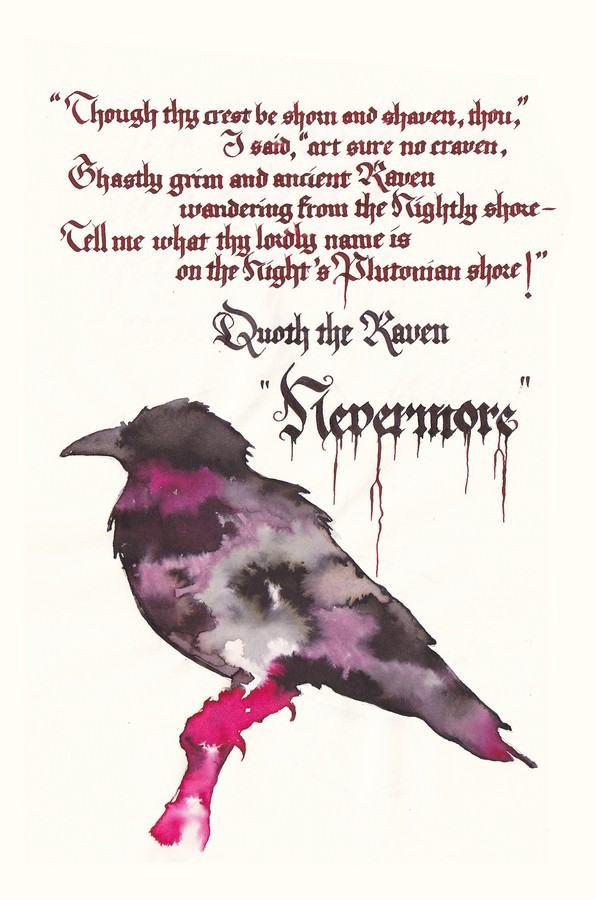 “Though thy crest be shorn and shaven, thou,”
I said, “art sure no craven,
Ghastly grim and ancient Raven
wandering from the Nightly shore—
Tell me what thy lordly name is
on the Night's Plutonian shore!”
Quoth the Raven
"Nevermore"